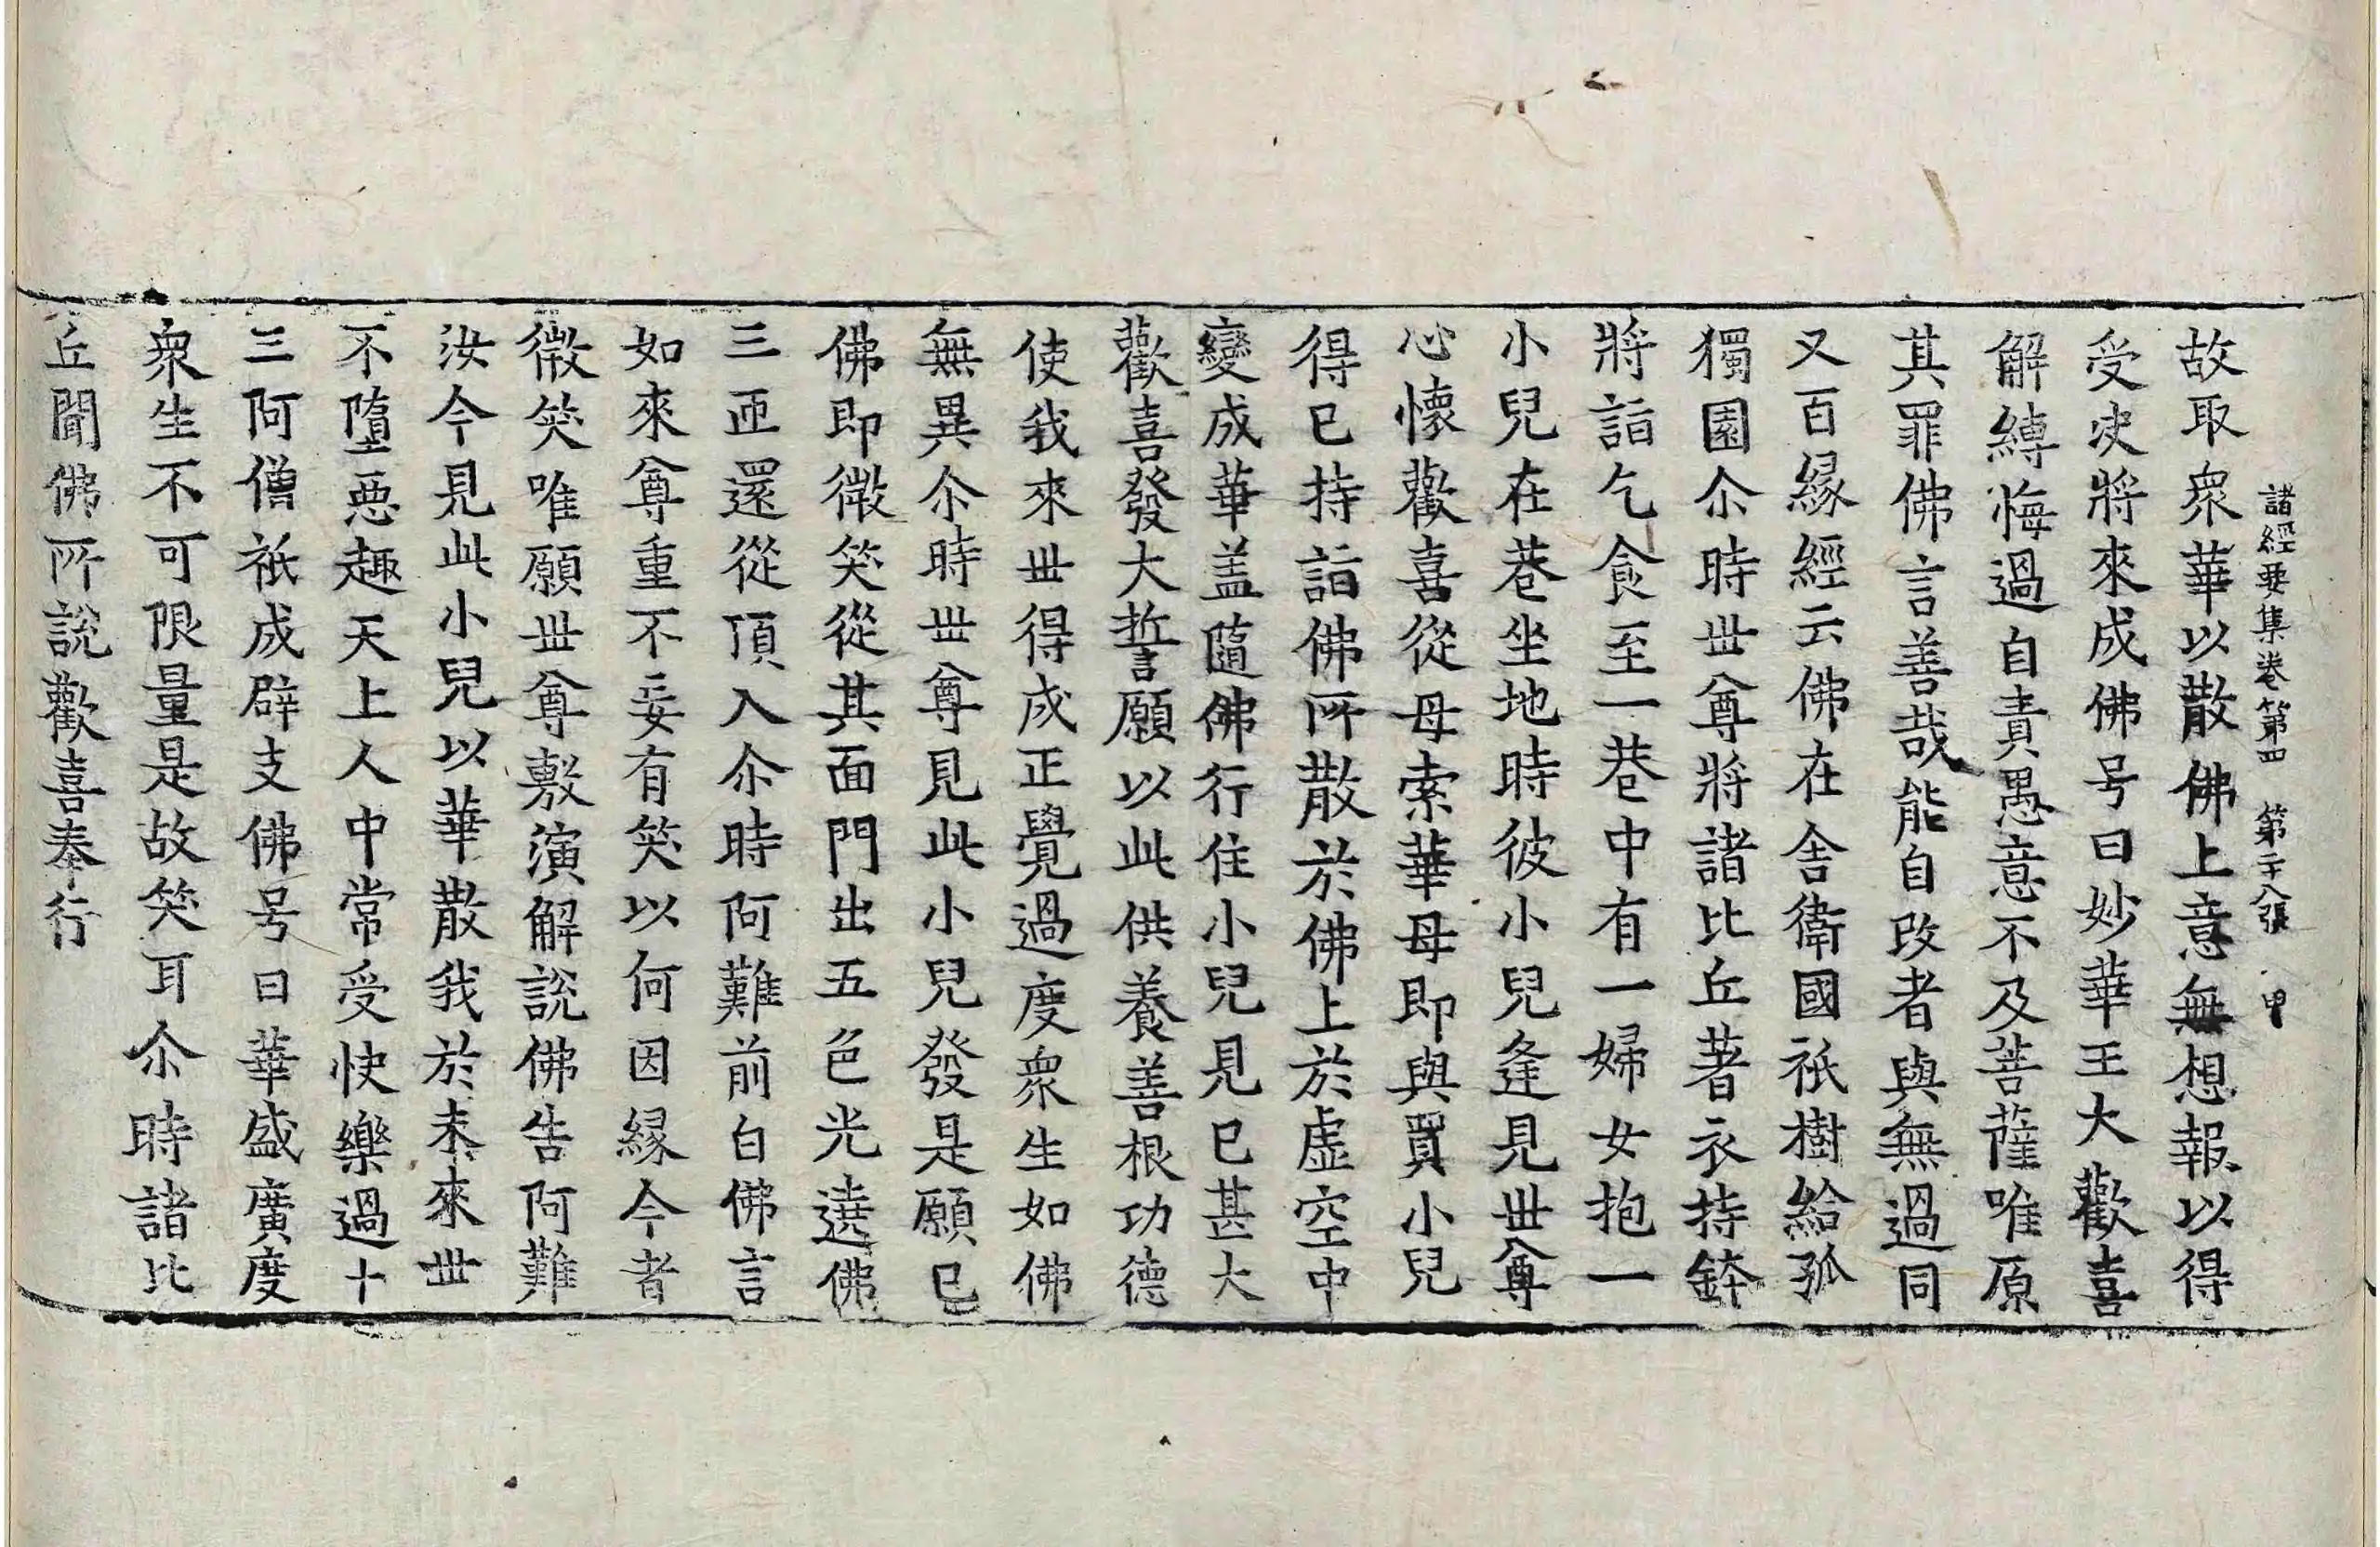 諸經要集卷第四　第二十八張　甲
故取衆華以散佛上意無想報以得
受决將來成佛号曰妙華王大歡喜
解縛悔過自責愚意不及菩薩唯原
其罪佛言善哉能自改者與無過同
又百緣經云佛在舍衛國祇樹給孤
獨園尒時世尊將諸比丘著衣持鉢
將詣乞食至一巷中有一婦女抱一
小兒在巷坐地時彼小兒逢見世尊
心懷歡喜從母索華母即與買小兒
得已持詣佛所散於佛上於虛空中
變成華盖隨佛行住小兒見已甚大
歡喜發大誓願以此供養善根功德
使我來世得成正覺過度衆生如佛
無異尒時世尊見此小兒發是願已
佛即微笑從其面門出五色光遶佛
三匝還從頂入尒時阿難前白佛言
如來尊重不妄有笑以何因緣今者
微笑唯願世尊敷演解說佛告阿難
汝今見此小兒以華散我於未來世
不墮惡趣天上人中常受快樂過十
三阿僧祇成辟支佛号曰華盛廣度
衆生不可限量是故笑耳尒時諸比
丘聞佛所說歡喜奉行